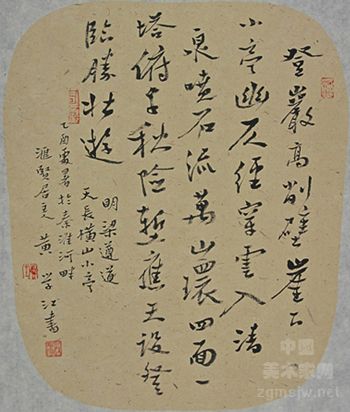 登巖高削壁崖下
小亭幽仄徑穿雲入清
泉噴石流萬山環四面一
塔俯千秋險塹應天設登
臨勝壯遊
明梁遵道
天長橫山小亭
乙酉處暑於秦淮河畔
滙賢居主黄学江書
中国
美术家网
zgmsjw.net